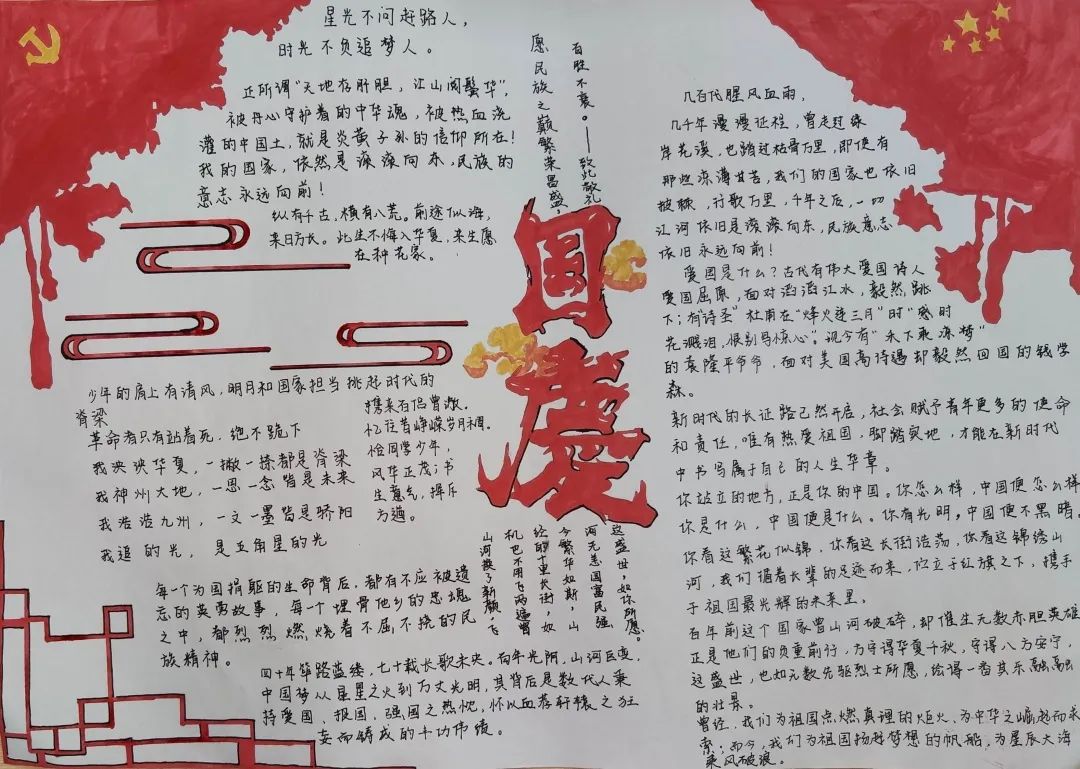 星光不问赶路人，
时光不负追梦人。
正所谓"天地存肝胆，江山阅鬓华"，
被丹心守护着的中华魂，被热血浇
灌的中国土，就是炎黄子孙的信仰所在！
我的国家，依然是滚滚向东，民族的
意志永远向前！
纵有千古，横有八荒。前途似海，
来日方长。此生不悔入华夏，来生愿
在种花家。
愿民族之巅繁荣昌盛，
百胜不衰。——致此敬礼
国
慶
少年的肩上有清风，明月和国家担当挑起时代的
脊梁
革命者只有站着死，绝不跪下
我泱泱华夏，一撇一捺都是脊梁
我神州大地，一思一念皆是未来
我浩浩九州，一文一墨皆是骄阳
我追的光，是五角星的光
携来百侣曾游，
忆往昔峥嵘岁月稠。
恰同学少年，
风华正茂；书
生意气，挥斥
方遒。
每一个为国捐躯的生命背后，都有不应被遗
忘的英勇故事，每一个埋骨他乡的忠魂
之中，都烈烈燃烧着不屈不挠的民
族精神。
这盛世，如你所愿。
河无恙国富民强
今繁华如斯，山
经的十里长街，如
机也不用飞两遍曾
山河换了新颜，飞
四十年筚路蓝缕，七十载长歌未央。百年光阴，山河巨变，
中国梦从星星之火到万丈光明，其背后是数代人秉
持爱国、报国、强国之热忱，怀以血荐轩辕之狂
妄而铸成的丰功伟绩。
几百代腥风血雨，
几千年漫漫征程，曾走过缘
岸花溪，也踏过枯骨万里，即使有
那些凉薄甘苦，我们的国家也依旧
披棘，行歌万里，千年之后，一切
江河依旧是滚滚向东，民族意志
依旧永远向前！
爱国是什么？古代有伟大爱国诗人
爱国屈原，面对滔滔江水，毅然跳
下；有诗圣"杜甫在"烽火连三月"时"感时
花溅泪，恨别鸟惊心"。现今有"禾下乘凉梦"
的袁隆平爷爷，面对美国高待遇却毅然回国的钱学
森。
新时代的长征路已然开启，社会赋予青年更多的使命
和责任，唯有热爱祖国，脚踏实地，才能在新时代
中书写属于自己的人生华章。
你站立的地方，正是你的中国。你怎么样，中国便怎么样
你是什么，中国便是什么。你有光明，中国便不黑暗。
你看这繁花似锦，你看这长街浩荡，你看这锦绣山
河，我们循着长辈的足迹而来，伫立于红旗之下，携手
于祖国最光辉的未来里。
百年前这个国家曾山河破碎，却催生无数赤胆英雄
正是他们的负重前行，方守得华夏千秋，守得八方安宁，
这盛世，也如无数先驱烈士所愿，绘得一番其乐融融
的壮景。
曾经，我们为祖国点燃真理的炬火，为中华之崛起而求
索；而今，我们为祖国扬起梦想的帆船，为星辰大海
乘风破浪。